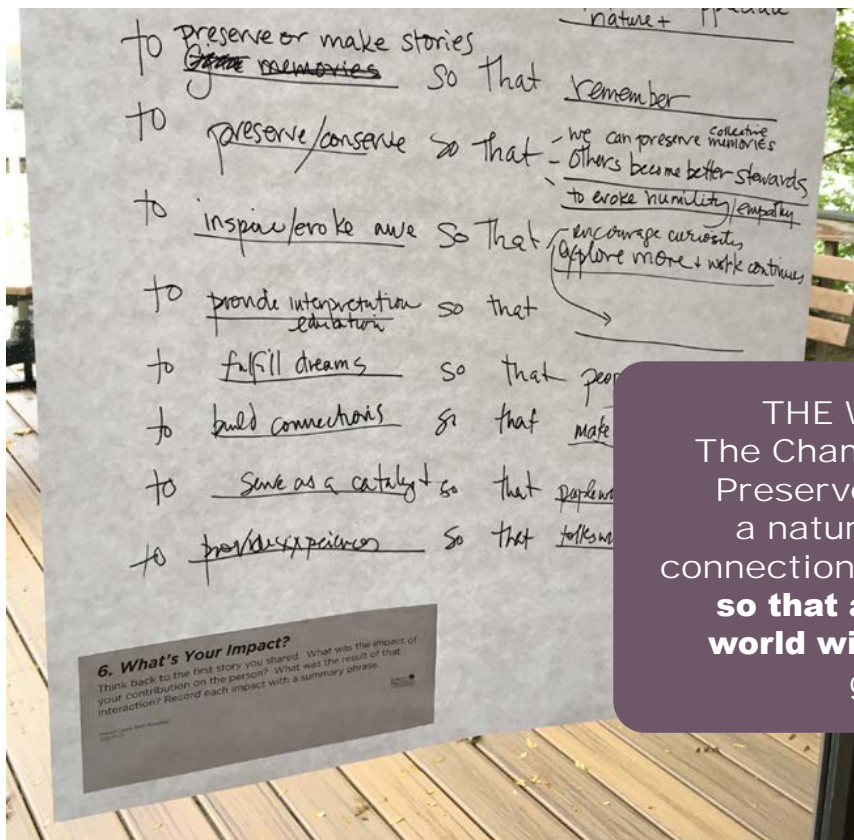 nature +
to preserve or make stories
memories so that remember
to preserve/conserve so that - we can preserve collective memories
- others become better stewards
to evoke humility/empathy
to inspire/evoke awe so that - encourage curiosity
explore more + work continues
to provide interpretation so that
education
to fulfill dreams so that
to build connections so that make
to serve as a catalyst so that
to provide experiences so that
6. What's Your Impact?
Think back to the first story you shared. What was the impact of
your contribution on the person? What was the result of that
interaction? Record each impact with a summary phrase.
THE
The
a
connection
so that
world